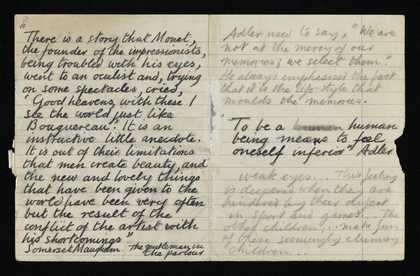 There is a story that Monet,
the founder of the impressionists,
being troubled with his eyes,
went to an oculist and, trying
on some spectacles, cried,
'Good heavens, with these I
see the world just like
Bouguereau'. It is an
instructive little anecdote.
It is out of their limitations
that men create beauty, and
the new and lovely things
that have been given to the
world have been very often
but the result of the
conflict of the artist with
his shortcomings"
Somerset Maugham. The gentleman in
the parlour
Adler used to say, "We are
not at the mercy of our
memories; we select them."
He always emphasised the fact
that it is the life style that
moulds the memories.
"To be a human
being means to feel
oneself inferior" Adler
weak eyes. This feeling
is deepened when they are
hindered by their defect
in sport and games. The
other children ... make fun
of these seemingly clumsy
children ...